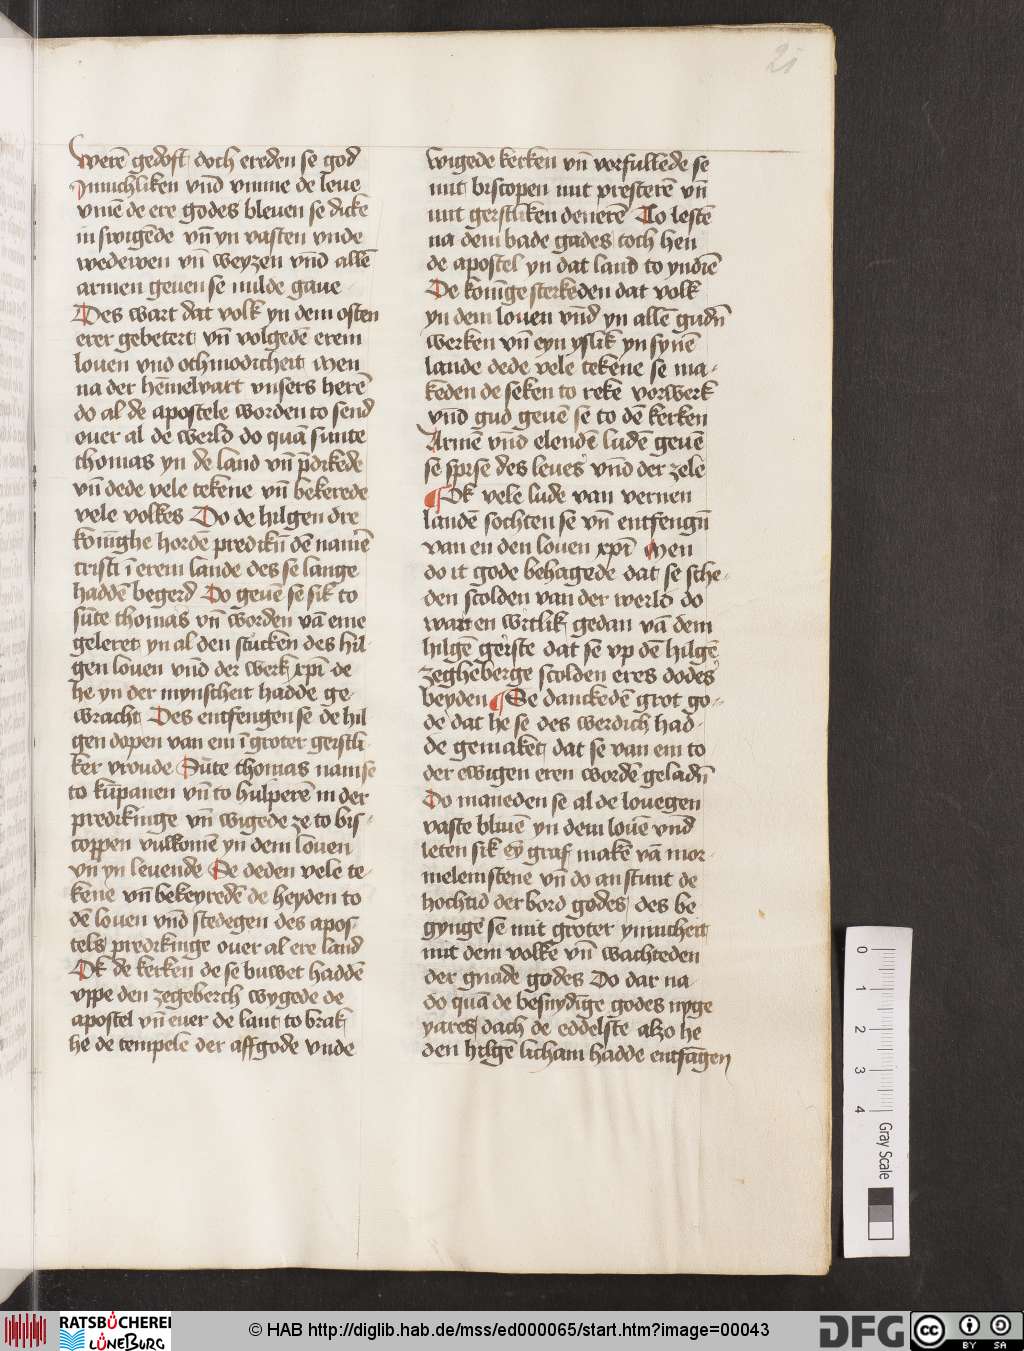 21
werē gedoft doch ereden se god
ynnichliken vnd vmme de leue
vmē de ere godes bleuen se dicke
in swigēde vn̄ yn vasten vnde
wedewen vn̄ weyzen vnd allē
armen geuen se milde gaue
Des wart dat volk yn dem osten
erer gebetert vn̄ volgedē erem
louen vnd othmodicheit Men
na der hēmelvart vnsers herē
do al de apostele worden to send
ouer al de werld do quā sunte
thomas yn de land vn̄ p̄dikede
vn̄ dede vele tekene vn̄ bekerede
vele volkes Do de hilgen dre
konīghe hordē predickn̄ dē namē
cristi ī erem lande des se lange
haddē begerd Do geuē se sik to
sūte thomas vn̄ worden vā eme
geleret yn al den stucken des hil
gen louen vnd der werk xp̄i de
he yn der mynscheit hadde ge-
wracht Des entfengen se de hil
gen dopen van em ī groter geistli-
ker vroude Sūte thomas nam se
to kūpanen vn̄ to hulperē in der
predikinge vn̄ wigede ze to bis-
coppen vulkomē yn dem louen
vn̄ yn leuende Se deden vele te-
kene vn̄ bekeyredē de heyden to
dē louen vnd stedegen des apos-
tels predikinge ouer al ere land
Ok de kerken de se buwet haddē
vppe den zegeberch wygede de
apostel vn̄ euer de lant to brak
he de tempele der affgode vnde
wigede kerken vn̄ vorfullede se
mit biscopen mit presterē vn̄
mit geistliken denerē To lestē
na dem bade gades toch hen
de apostel yn dat land to yndiē
De konīge sterkeden dat volk
yn dem louen vnd yn allē gudn̄
werken vn̄ eyn yslik yn synē
lande dede vele tekene se ma-
keden de seken to reke vorwerk
vnd gud geuē se to dē kerken
Armē vnd elendē ludē geuē
se spise des leues vnd der zele
Ok vele lude van vernen
landē sochten se vn̄ entfengn̄
van en den louen xp̄i Men
do it gode behagede dat se sche-
den scolden van der werld do
wart en witlik gedan vā dem
hilgē geiste dat se vp dē hilgē
zegheberge scolden eres dodes
beyden Se danckedē grot go-
de dat he se des werdich had-
de gemaket dat se van em to
der ewigen eren wordē geladn̄
Do maneden se al de louegen
vaste bliuē yn dem louē vnd
leten sik eȳ graf makē vā mor-
melemstene vn̄ do an stunt de
hochtid der bord godes des be
gynge se mit groter ynnicheit
mit dem volke vn̄ wachteden
der gnade godes Do dar na
do quā de besnydīge godes nyge
yares dach de eddelste alzo he
den hilgē licham hadde entfāgen
0
1
2
3
4
Gray Scale
RATSBÜCHEREI
LÜNEBURG
© HAB http://diglib.hab.de/mss/ed000065/start.htm?image=00043
DFG
cc
BY SA